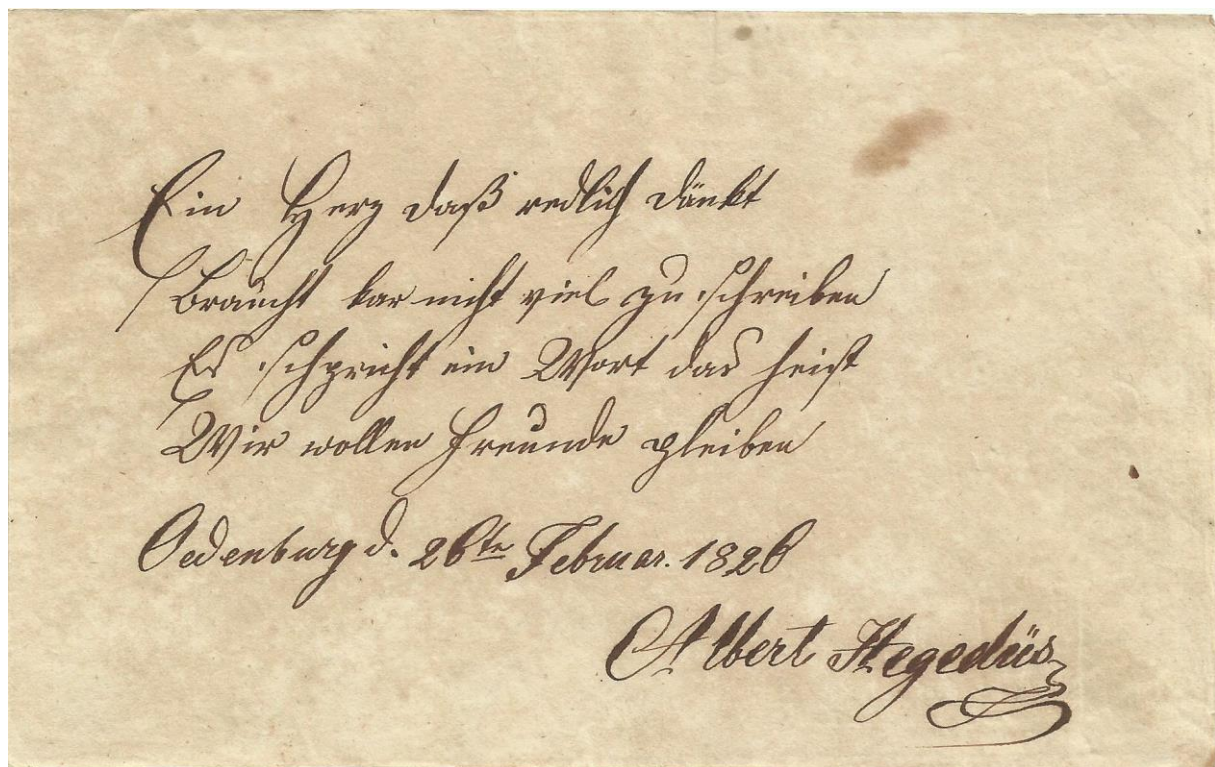 Ein Herz daß redlich dänkt
Braucht kar nicht viel zu schreiben
Es schpricht ein Wort das heist
Wir wollen Freunde pleiben
Oedenburg d. 26te Februar. 1826
Albert Hegedüs